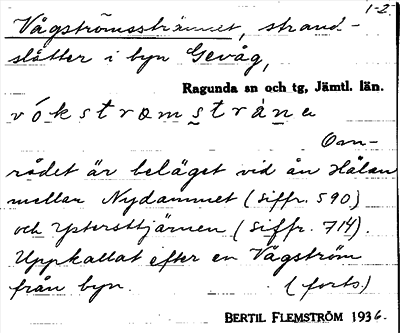 1-2.
Vågströmsstrännet, strand-
slåtter i byn Gevåg,
Ragunda sn och tg, Jämtl. län.
Om-
rådet är beläget vid ån Hålån
mellan Nydammet (siffr. 590)
och Yttersttjärnen (siffr. 714).
Uppkallat efter en Vågström
från byn. (forts.)
BERTIL FLEMSTRÖM 1936.